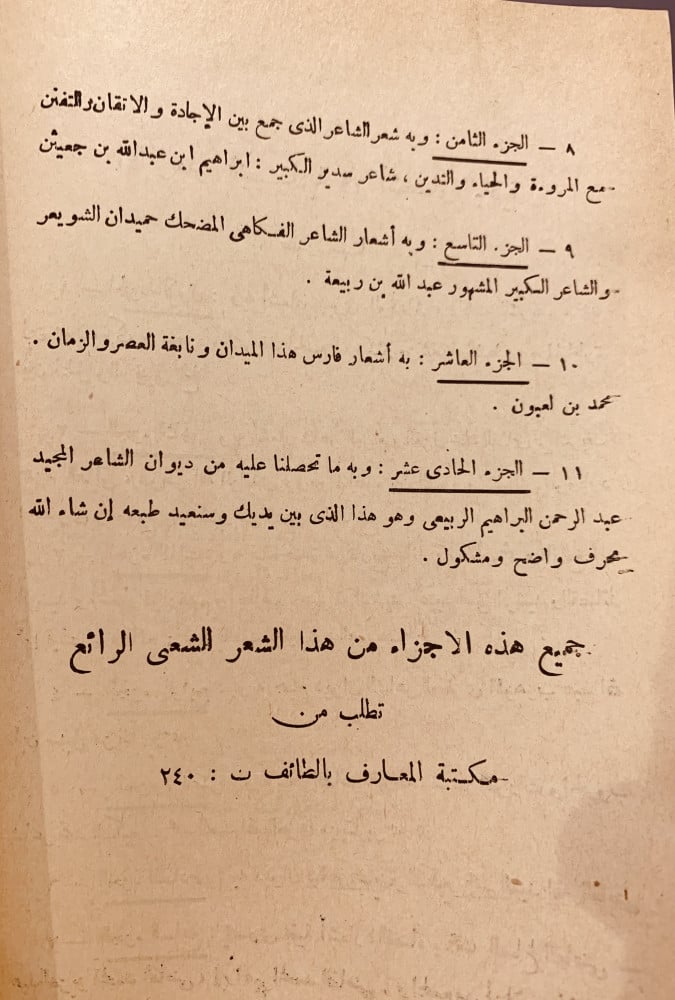 ٨ — الجزء الثامن : وبه شعر الشاعر الذى جمع بين الإجادة والاتقان والتفنن
مع المروءة والحياء والتدين ، شاعر سدير الكبير : ابراهيم ابن عبدالله بن جعيثن
٩ — الجزء التاسع : وبه أشعار الشاعر الفكاهى المضحك حميدان الشويعر
والشاعر الكبير المشهور عبد الله بن ربيعة .
١٠ — الجزء العاشر : به أشعار فارس هذا الميدان ونابغة العصر والزمان .
محمد بن لعبون .
١١ — الجزء الحادى عشر : وبه ما تحصلنا عليه من ديوان الشاعر المجيد
عبد الرحمن البراهيم الربيعى وهو هذا الذى بين يديك وسنعيد طبعه إن شاء الله
بحرف واضح ومشكول .
جميع هذه الاجزاء من هذا الشعر الشعبى الرائع
تطلب من
مكتبة المعارف بالطائف ت : ٢٤٠